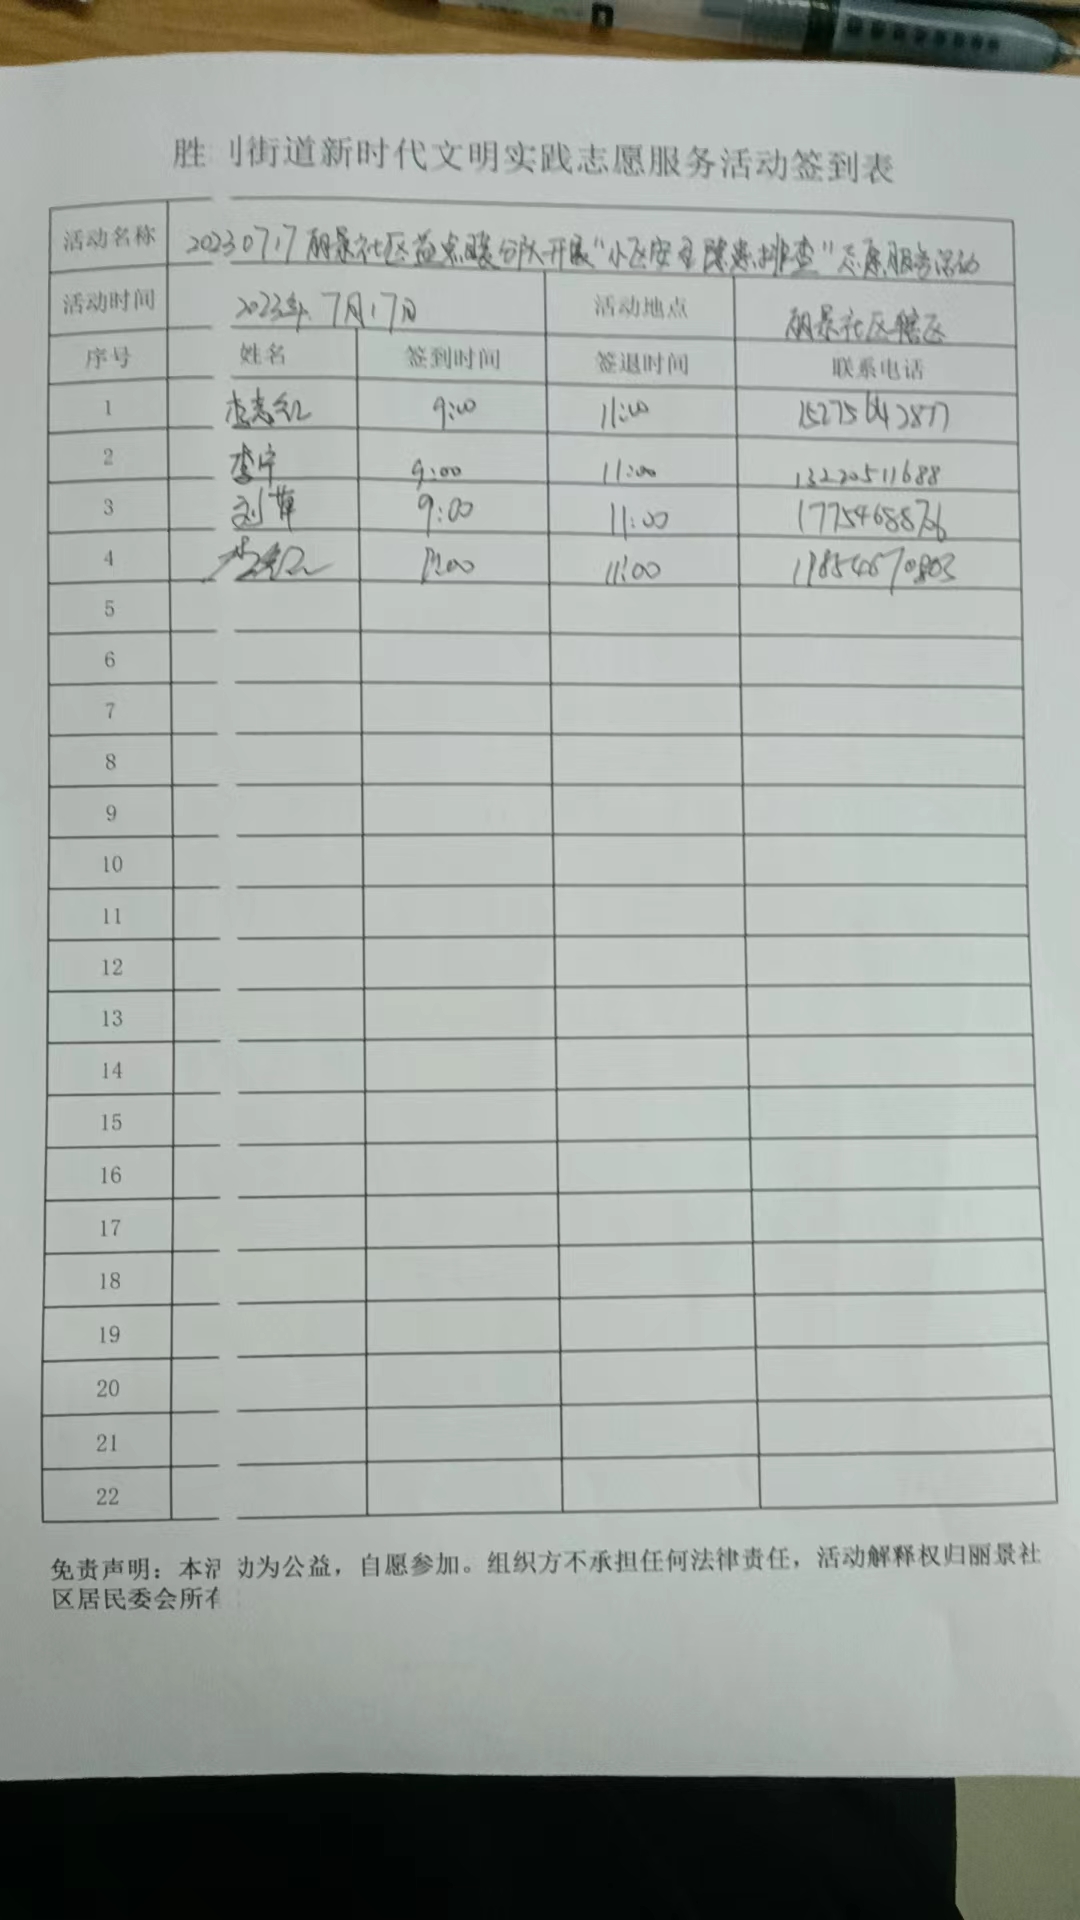 胜利街道新时代文明实践志愿服务活动签到表
活动名称 20230717丽景社区益点暖分队开展“小区安全隐患排查”志愿服务活动
活动时间 2023年7月17日 活动地点 丽景社区辖区
序号 姓名 签到时间 签退时间 联系电话
1 9:00 11:00
2 李宁 9:00 11:00 13220511688
3 刘萍 9:00 11:00
4 11:00
5
6
7
8
9
10
11
12
13
14
15
16
17
18
19
20
21
22
免责声明：本活动为公益，自愿参加。组织方不承担任何法律责任，活动解释权归丽景社
区居民委会所有